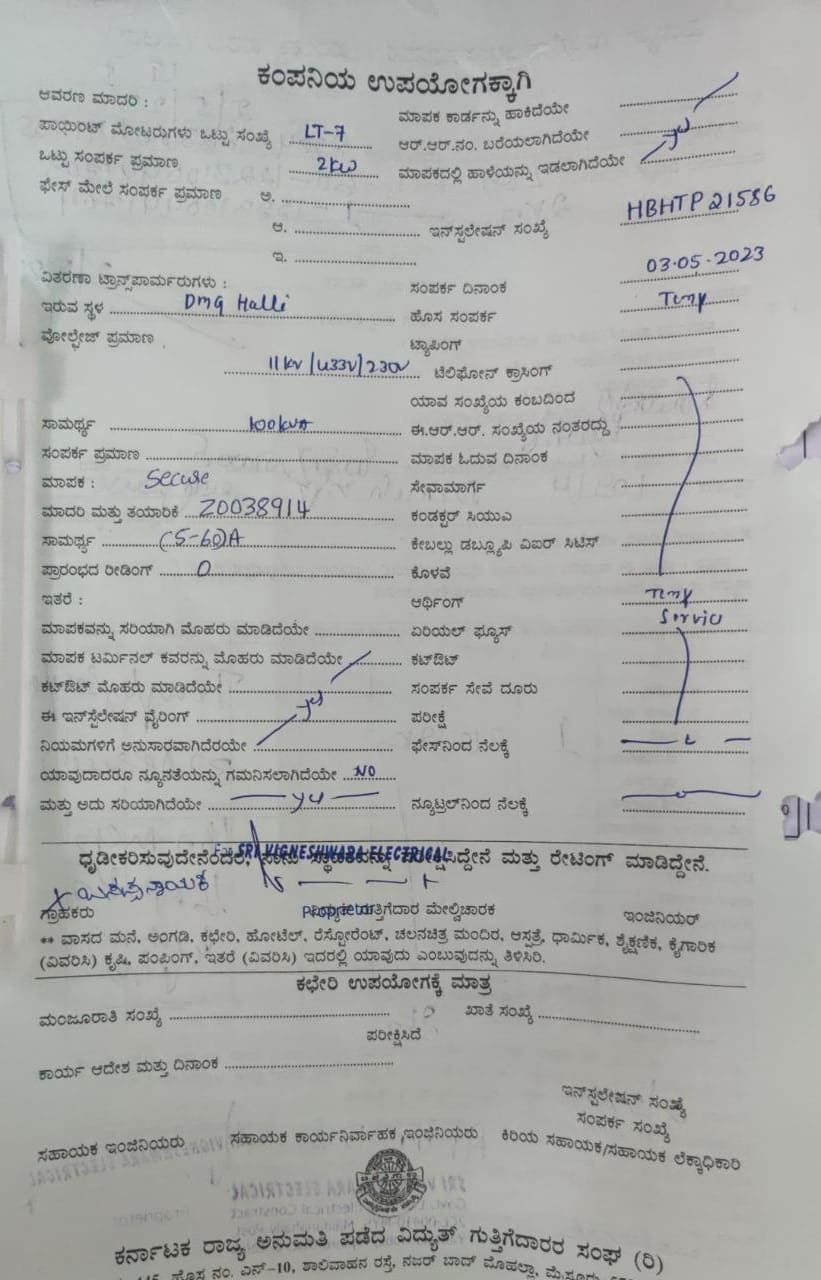 ಕಂಪನಿಯ ಉಪಯೋಗಕ್ಕಾಗಿ
ಆವರಣ ಮಾದರಿ : ಮಾಪಕ ಕಾರ್ಡನ್ನು ಹಾಕಿದೆಯೇ
ಪಾಯಿಂಟ್ ಮೋಟರುಗಳು ಒಟ್ಟು ಸಂಖ್ಯೆ LT-7 ಆರ್.ಆರ್.ನಂ. ಬರೆಯಲಾಗಿದೆಯೇ
ಒಟ್ಟು ಸಂಪರ್ಕ ಪ್ರಮಾಣ 2kw ಮಾಪಕದಲ್ಲಿ ಹಾಳೆಯನ್ನು ಇಡಲಾಗಿದೆಯೇ
ಫೇಸ್ ಮೇಲೆ ಸಂಪರ್ಕ ಪ್ರಮಾಣ ಅ.
ಆ. ಇನ್‌ಸ್ಟಲೇಷನ್ ಸಂಖ್ಯೆ HBHTP21586
ಇ.
ವಿತರಣಾ ಟ್ರಾನ್ಸ್‌ಪಾರ್ಮರುಗಳು : ಸಂಪರ್ಕ ದಿನಾಂಕ 03.05.2023
ಇರುವ ಸ್ಥಳ Dmg Halli ಹೊಸ ಸಂಪರ್ಕ Temp
ವೋಲ್ಟೇಜ್ ಪ್ರಮಾಣ ಟ್ಯಾಪಿಂಗ್
11kv/433v/230v ಟೆಲಿಫೋನ್ ಕ್ರಾಸಿಂಗ್
ಯಾವ ಸಂಖ್ಯೆಯ ಕಂಬದಿಂದ
ಸಾಮರ್ಥ್ಯ 100kva ಈ.ಆರ್.ಆರ್. ಸಂಖ್ಯೆಯ ನಂತರದ್ದು
ಸಂಪರ್ಕ ಪ್ರಮಾಣ ಮಾಪಕ ಓದುವ ದಿನಾಂಕ
ಮಾಪಕ : Secure ಸೇವಾಮಾರ್ಗ
ಮಾದರಿ ಮತ್ತು ತಯಾರಿಕೆ 20038914 ಕಂಡಕ್ಟರ್ ಸಿಯುಎ
ಸಾಮರ್ಥ್ಯ (5-60)A ಕೇಬಲ್ಲು ಡಬ್ಲ್ಯೂಪಿ ವಿಐರ್ ಸಿಟಿಸ್
ಪ್ರಾರಂಭದ ರೀಡಿಂಗ್ 0 ಕೊಳವೆ
ಇತರೆ : ಆರ್ಥಿಂಗ್ Temp
ಮಾಪಕವನ್ನು ಸರಿಯಾಗಿ ಮೊಹರು ಮಾಡಿದೆಯೇ ಏರಿಯಲ್ ಫ್ಯೂಸ್ Service
ಮಾಪಕ ಟರ್ಮಿನಲ್ ಕವರನ್ನು ಮೊಹರು ಮಾಡಿದೆಯೇ ಕಟ್‌ಔಟ್
ಕಟ್‌ಔಟ್ ಮೊಹರು ಮಾಡಿದೆಯೇ ಸಂಪರ್ಕ ಸೇವೆ ದೂರು
ಈ ಇನ್‌ಸ್ಟಲೇಷನ್ ವೈರಿಂಗ್ ಪರೀಕ್ಷೆ
ನಿಯಮಗಳಿಗೆ ಅನುಸಾರವಾಗಿದೆರಯೇ ಫೇಸ್‌ನಿಂದ ನೆಲಕ್ಕೆ
ಯಾವುದಾದರೂ ನ್ಯೂನತೆಯನ್ನು ಗಮನಿಸಲಾಗಿದೆಯೇ NO
ಮತ್ತು ಅದು ಸರಿಯಾಗಿದೆಯೇ ನ್ಯೂಟ್ರಲ್‌ನಿಂದ ನೆಲಕ್ಕೆ
For SRI VIGNESHWARA ELECTRICAL
ಧೃಡೀಕರಿಸುವುದೇನೆಂದರೆ, ನಾನು ಸ್ಥಾವರವನ್ನು ಪರೀಕ್ಷಿಸಿದ್ದೇನೆ ಮತ್ತು ರೇಟಿಂಗ್ ಮಾಡಿದ್ದೇನೆ.
ಗ್ರಾಹಕರು Proprietor ಗುತ್ತಿಗೆದಾರ ಮೇಲ್ವಿಚಾರಕ ಇಂಜಿನಿಯರ್
** ವಾಸದ ಮನೆ, ಅಂಗಡಿ, ಕಛೇರಿ, ಹೋಟೆಲ್, ರೆಸ್ಟೋರೆಂಟ್, ಚಲನಚಿತ್ರ ಮಂದಿರ, ಆಸ್ಪತ್ರೆ, ಧಾರ್ಮಿಕ, ಶೈಕ್ಷಣಿಕ, ಕೈಗಾರಿಕ
(ವಿವರಿಸಿ) ಕೃಷಿ, ಪಂಪಿಂಗ್, ಇತರೆ (ವಿವರಿಸಿ) ಇದರಲ್ಲಿ ಯಾವುದು ಎಂಬುವುದನ್ನು ತಿಳಿಸಿರಿ.
ಕಛೇರಿ ಉಪಯೋಗಕ್ಕೆ ಮಾತ್ರ
ಮಂಜೂರಾತಿ ಸಂಖ್ಯೆ ಖಾತೆ ಸಂಖ್ಯೆ
ಪರೀಕ್ಷಿಸಿದೆ
ಕಾರ್ಯ ಆದೇಶ ಮತ್ತು ದಿನಾಂಕ
ಇನ್‌ಸ್ಟಲೇಷನ್ ಸಂಖ್ಯೆ
ಸಂಪರ್ಕ ಸಂಖ್ಯೆ
ಸಹಾಯಕ ಇಂಜಿನಿಯರು ಸಹಾಯಕ ಕಾರ್ಯನಿರ್ವಾಹಕ ಇಂಜಿನಿಯರು ಕಿರಿಯ ಸಹಾಯಕ/ಸಹಾಯಕ ಲೆಕ್ಕಾಧಿಕಾರಿ
ಕರ್ನಾಟಕ ರಾಜ್ಯ ಅನುಮತಿ ಪಡೆದ ವಿದ್ಯುತ್ ಗುತ್ತಿಗೆದಾರರ ಸಂಘ (ರಿ)
ಹೊಸ ನಂ. ಎನ್-10, ಶಾಲಿವಾಹನ ರಸ್ತೆ, ನಜರ್ ಬಾದ್ ಮೊಹಲ್ಲಾ, ಮೈಸೂರು